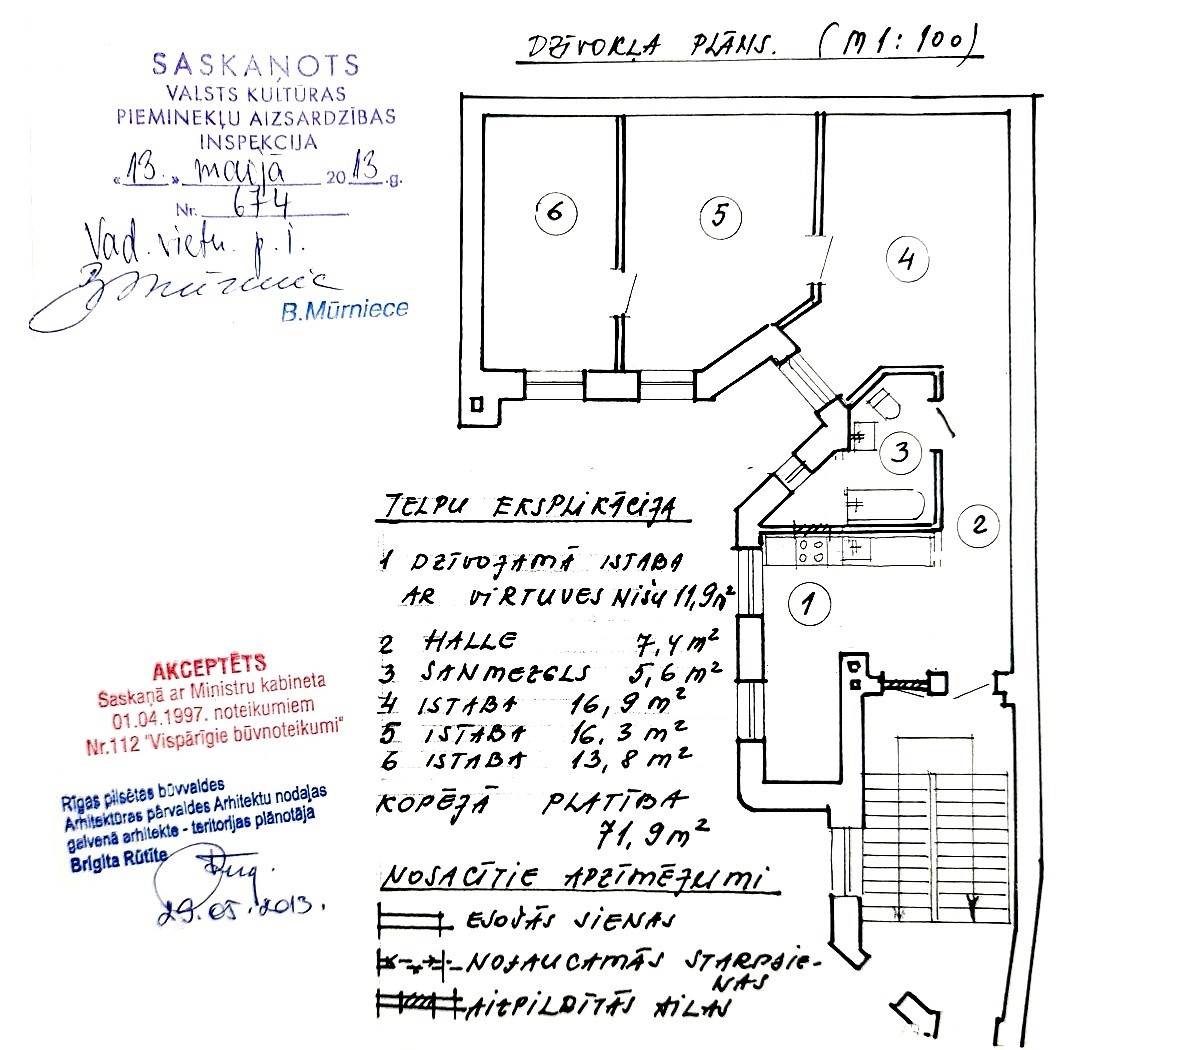 DZĪVOKĻA PLĀNS. (M 1:100)
SASKAŅOTS
VALSTS KULTŪRAS
PIEMINEKĻU AIZSARDZĪBAS
INSPEKCIJA
«13.» maijā 2013.g.
Nr. 674
Vad. vietn. p. i.
B.Mūrniece
6
5
4
3
2
1
TELPU EKSPLIKĀCIJA
1 DZĪVOJAMĀ ISTABA
AR VIRTUVES NIŠU 11,9 m²
2 HALLE 7,4 m²
3 SANMEZGLS 5,6 m²
4 ISTABA 16,9 m²
5 ISTABA 16,3 m²
6 ISTABA 13,8 m²
KOPĒJĀ PLATĪBA
71,9 m²
NOSACĪTIE APZĪMĒJUMI
ESOŠĀS SIENAS
NOJAUCAMĀS STARPSIE-
NAS
AIZPILDĪTĀS AILAS
AKCEPTĒTS
Saskaņā ar Ministru kabineta
01.04.1997. noteikumiem
Nr.112 "Vispārīgie būvnoteikumi"
Rīgas pilsētas būvvaldes
Arhitektūras pārvaldes Arhitektu nodaļas
galvenā arhitekte - teritorijas plānotāja
Brigita Rūtīte
29.05.2013.